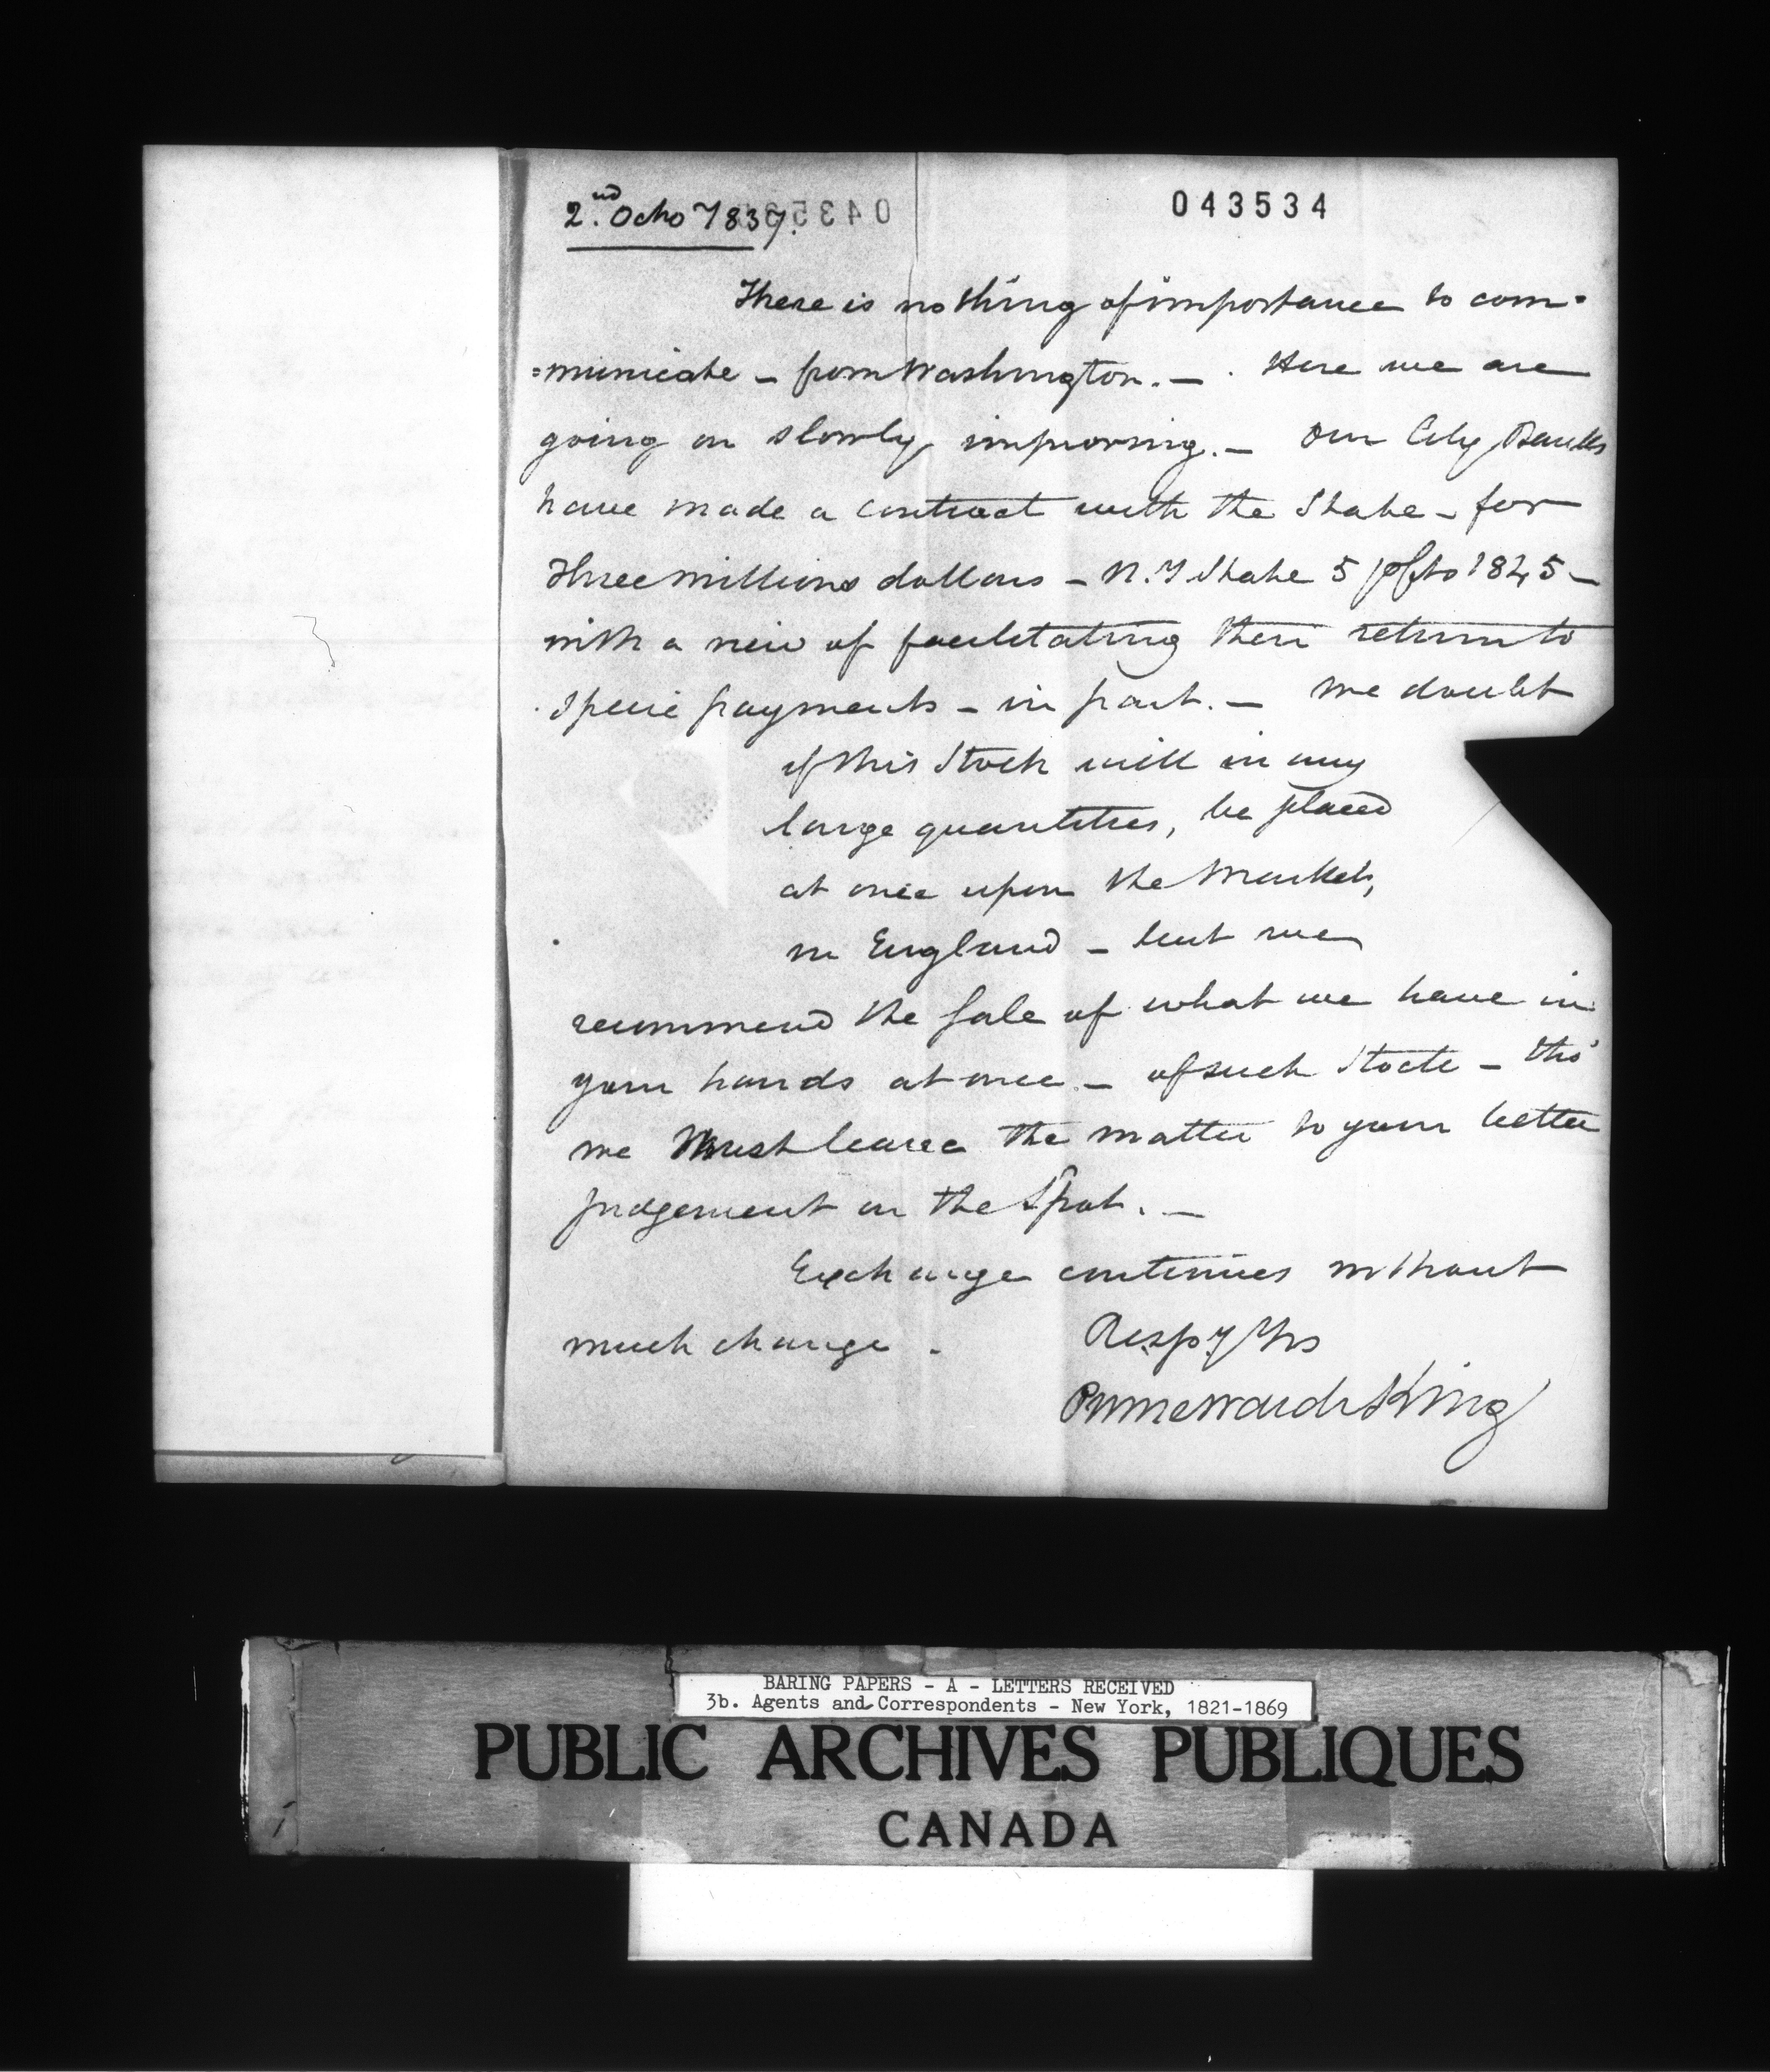 2.nd Octo 1837.
043534
There is nothing of importance to com=
=municate - from Washington. - Here we are
going on slowly improving. - Our City Banks
have made a contract with the State - for
Three millions dollars - N.Y State 5 p Cts 1845 -
with a view of facilitating their return to
Specie payments - in part. - We doubt
if this Stock will in any
large quantities, be placed
at once upon the Market,
in England - but we
recommend the Sale of what we have in
your hands at once - of such Stock - tho'
we Must leave the matter to your better
judgement on the Spot. -
Exchange continues without
much change.
Respy Yrs
Prime Ward & King
BARING PAPERS - A - LETTERS RECEIVED
3b. Agents and Correspondents - New York, 1821-1869
PUBLIC ARCHIVES PUBLIQUES
CANADA